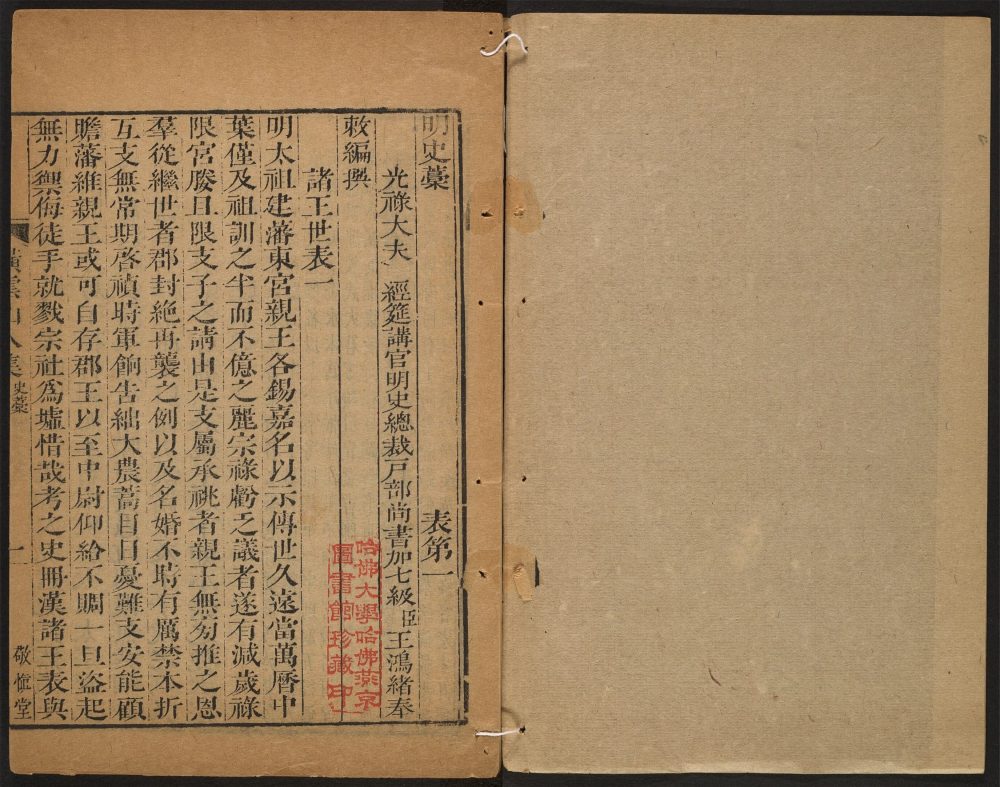 明史藁 表第一
光祿大夫 經筵講官明史總裁戸部尚書加七級臣王鴻緒奉
敕編撰
諸王世表一
明太祖建藩東宮親王各錫嘉名以示傳世久遠當萬曆中
葉僅及祖訓之半而不億之麗宗祿虧乏議者遂有減歲祿
限宮媵且限支子之請由是支屬承祧者親王無旁推之恩
羣從繼世者郡封絶再襲之例以及名婚不時有厲禁本折
互支無常期啓禎時軍餉告絀大農蒿目日憂難支安能顧
贍藩維親王或可自存郡王以至中尉仰給不賙一旦盜起
無力禦侮徒手就戮宗社為墟惜哉考之史冊漢諸王表與
橫雲山人集 史藁 一 敬愼堂
哈佛大學哈佛燕京
圖書館珍藏印